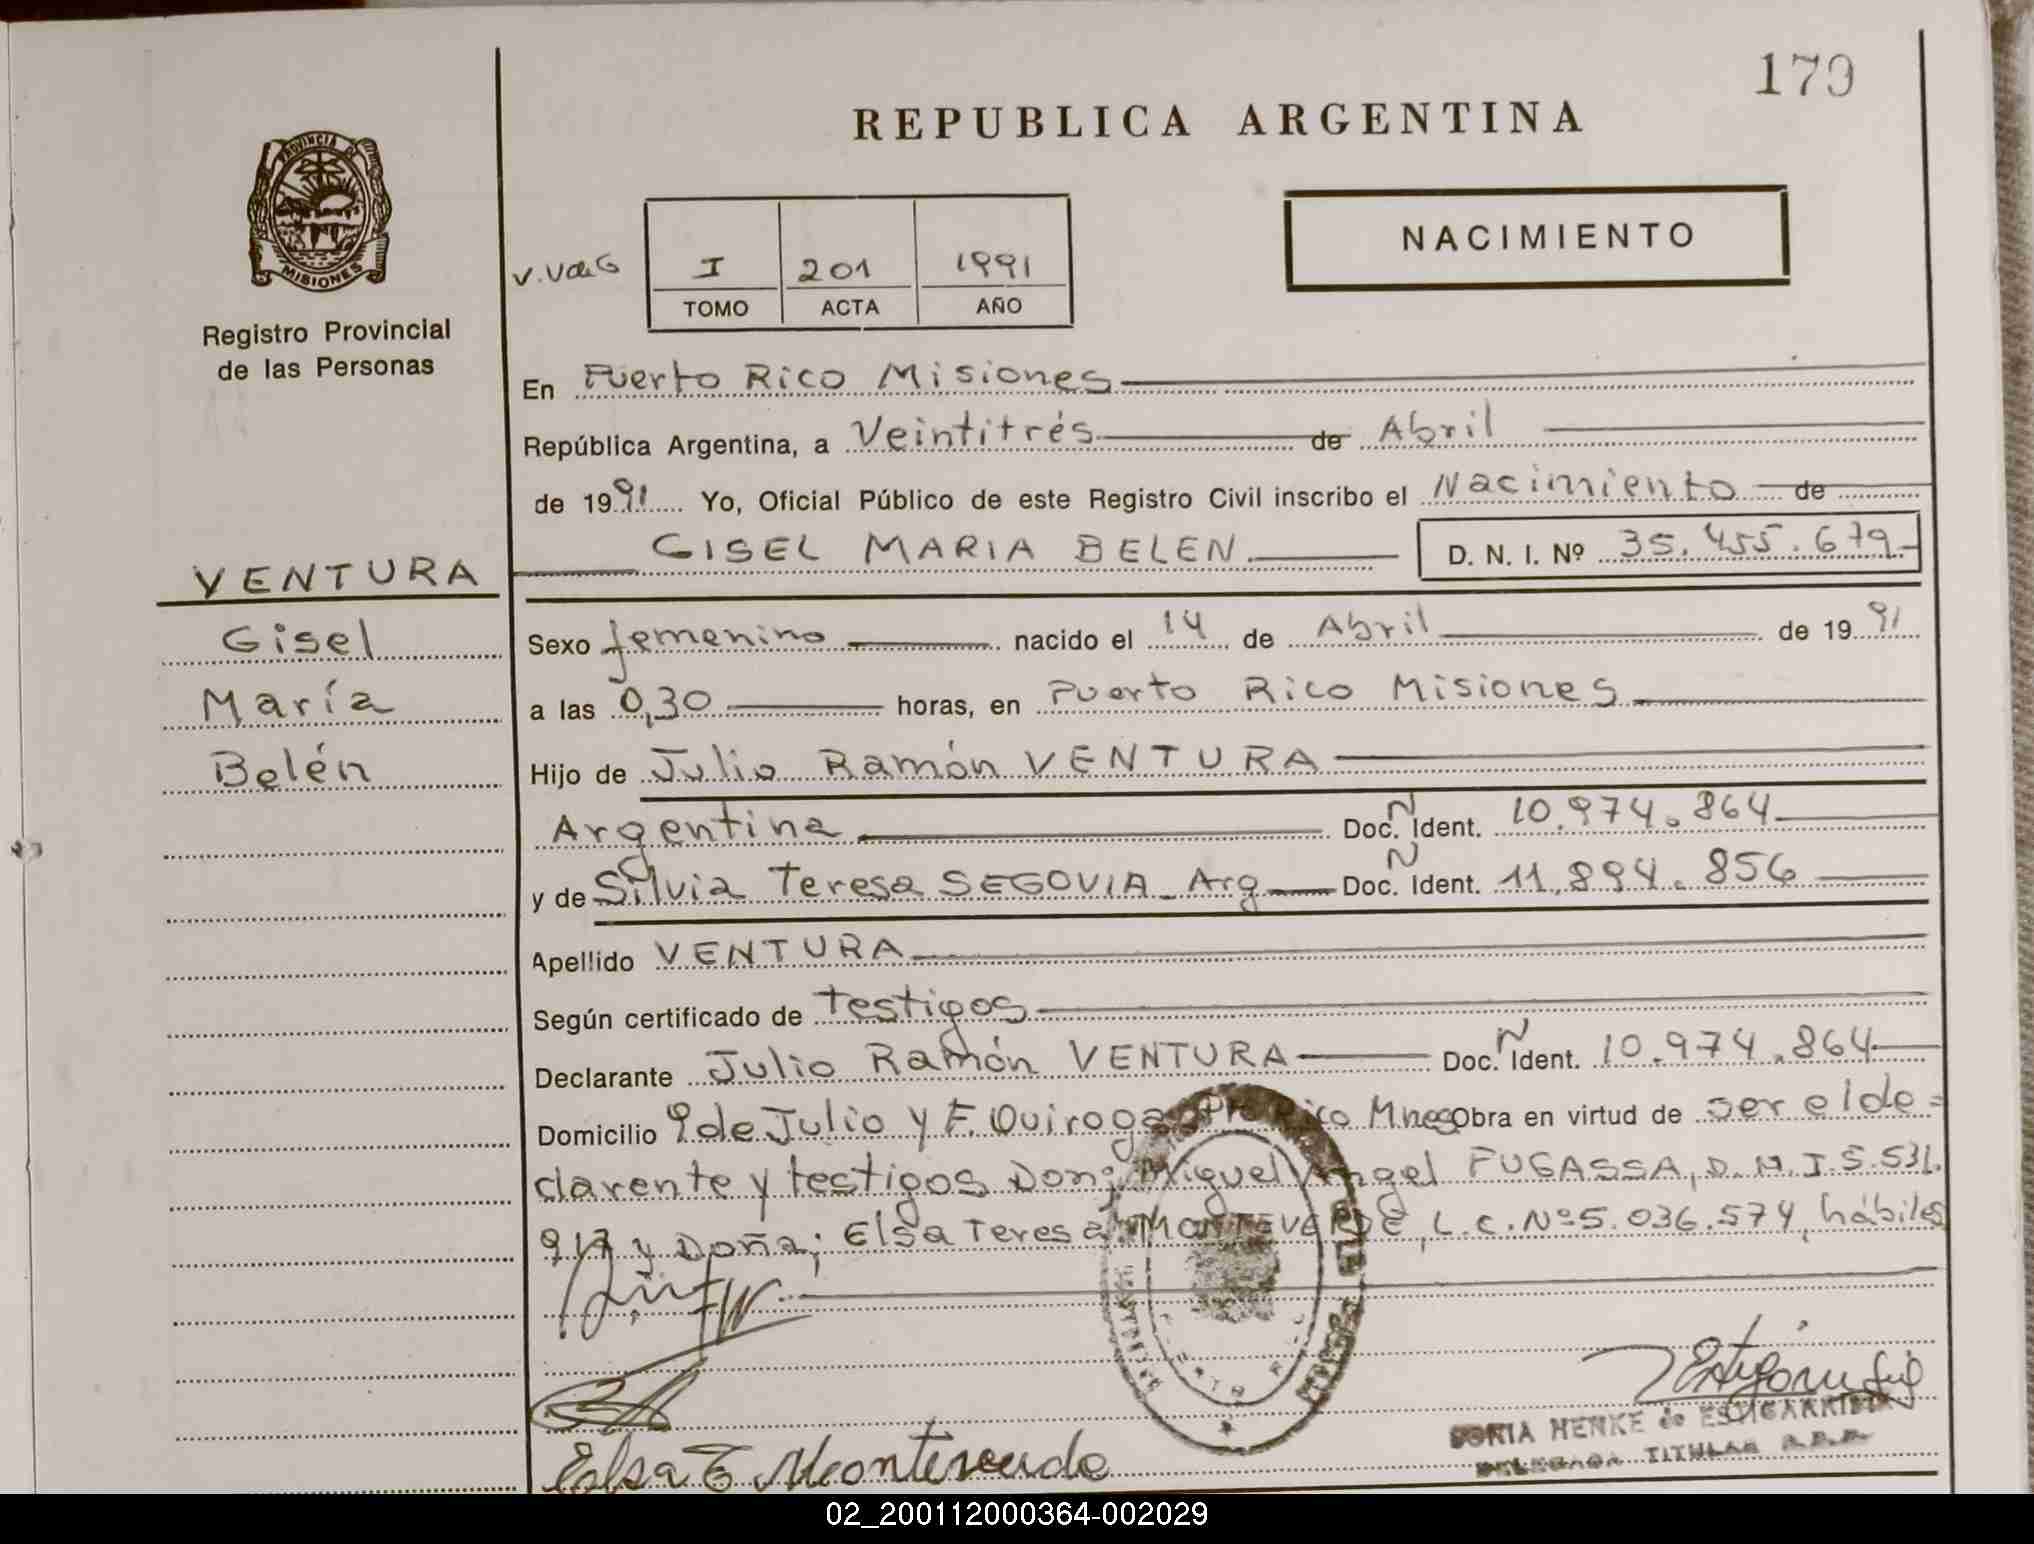 179
REPUBLICA ARGENTINA
PROVINCIA DE
MISIONES
Registro Provincial
de las Personas
V.VdeG
I 201 1991
TOMO ACTA AÑO
NACIMIENTO
En Puerto Rico Misiones
República Argentina, a Veintitrés de Abril
de 1991 Yo, Oficial Público de este Registro Civil inscribo el Nacimiento de
GISEL MARIA BELEN D. N. I. Nº 35.455.679
VENTURA
Gisel
María
Belén
Sexo femenino nacido el 14 de Abril de 1991
a las 0,30 horas, en Puerto Rico Misiones
Hijo de Julio Ramón VENTURA
Argentina Doc. N Ident. 10.974.864
y de Silvia Teresa SEGOVIA Arg Doc. N Ident. 11.894.856
Apellido VENTURA
Según certificado de testigos
Declarante Julio Ramón VENTURA Doc. N Ident. 10.974.864
Domicilio 9 de Julio y F. Quiroga Pto Rico Mnes Obra en virtud de ser el de=
clarente y testigos Don; Miguel Angel FUGASSA, D.N.I.5.531.
917 y Doña; Elsa Teresa MONTEVERDE, L.C.Nº5.036.574, hábiles
Elsa T Monteverde
SONIA HENKE de ESTIGARRIBIA
DELEGADA TITULAR R.P.P.
02_200112000364-002029